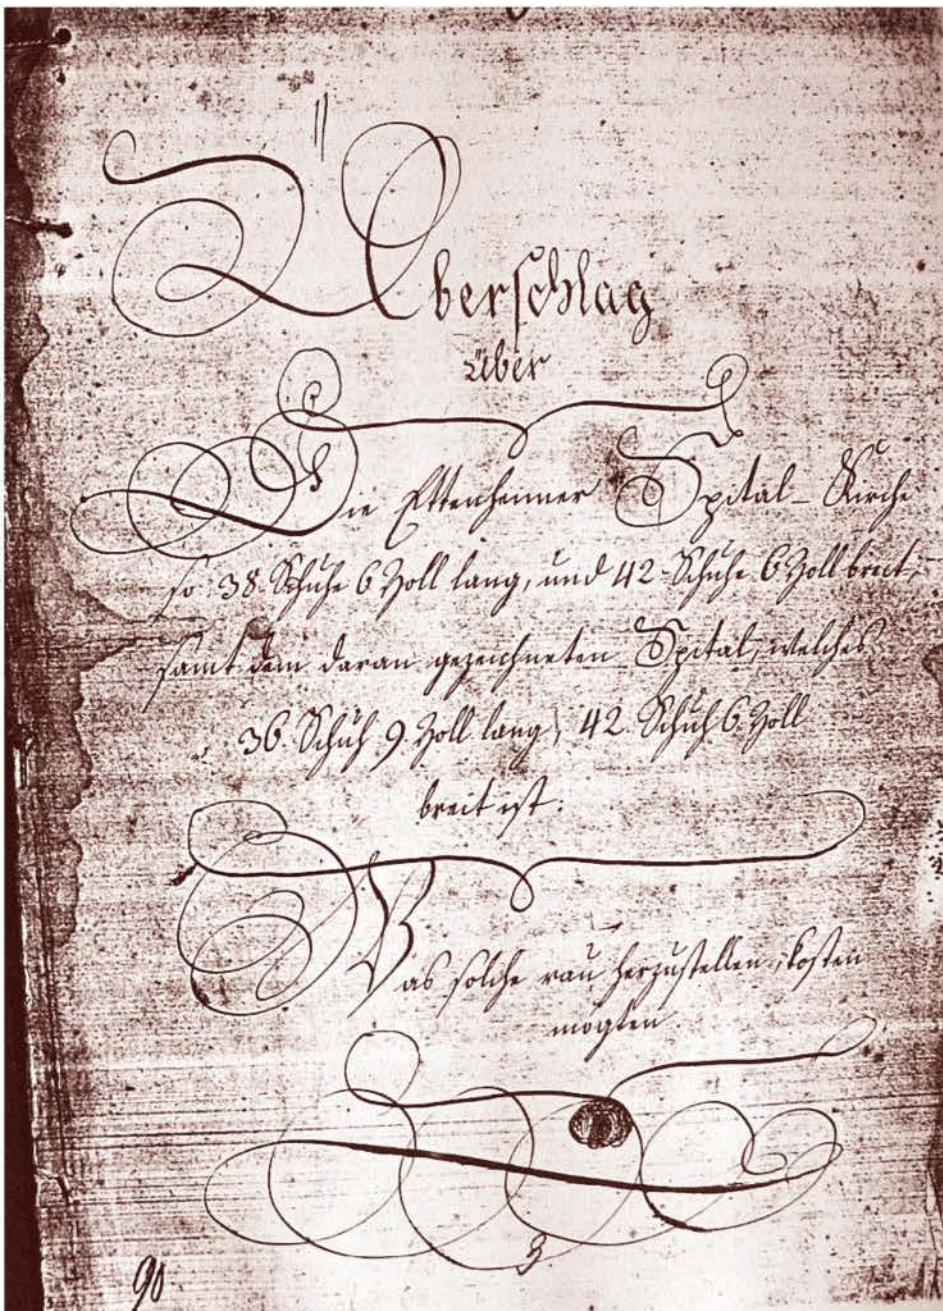 Überschlag
über
Die Ettenheimer Spital-Kirche
so 38. Schuhe 6 Zoll lang, und 42. Schuhe 6 Zoll breit,
samt dem daran gezeichneten Spital, welches
36. Schuh 9. Zoll lang, 42. Schuh 6 Zoll
breit ist:
Was solche rau herzustellen, kosten
mögten.
3
90